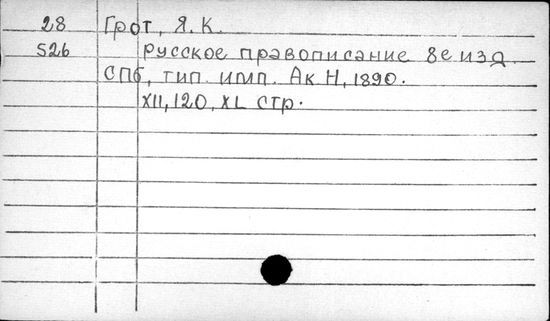 28 Грот, Я. К.
S26 Русское правописание 8е изд.
СПб, тип. имп. Ак Н, 1890.
XII, 120, XL стр.